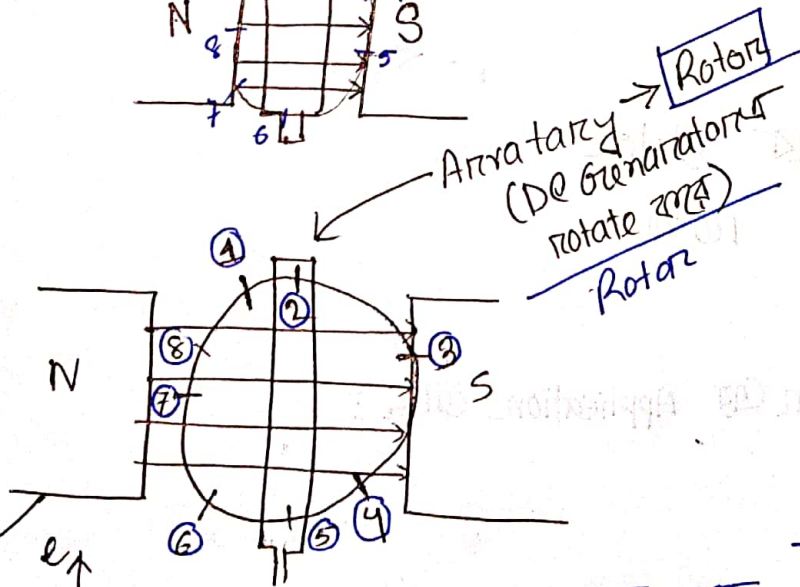 N
S
8
5
7
6
Arratary → Rotor
(DC Grenarator এ
rotate করে)
Rotor
1
2
8
3
N
7
S
6
5
4
e↑